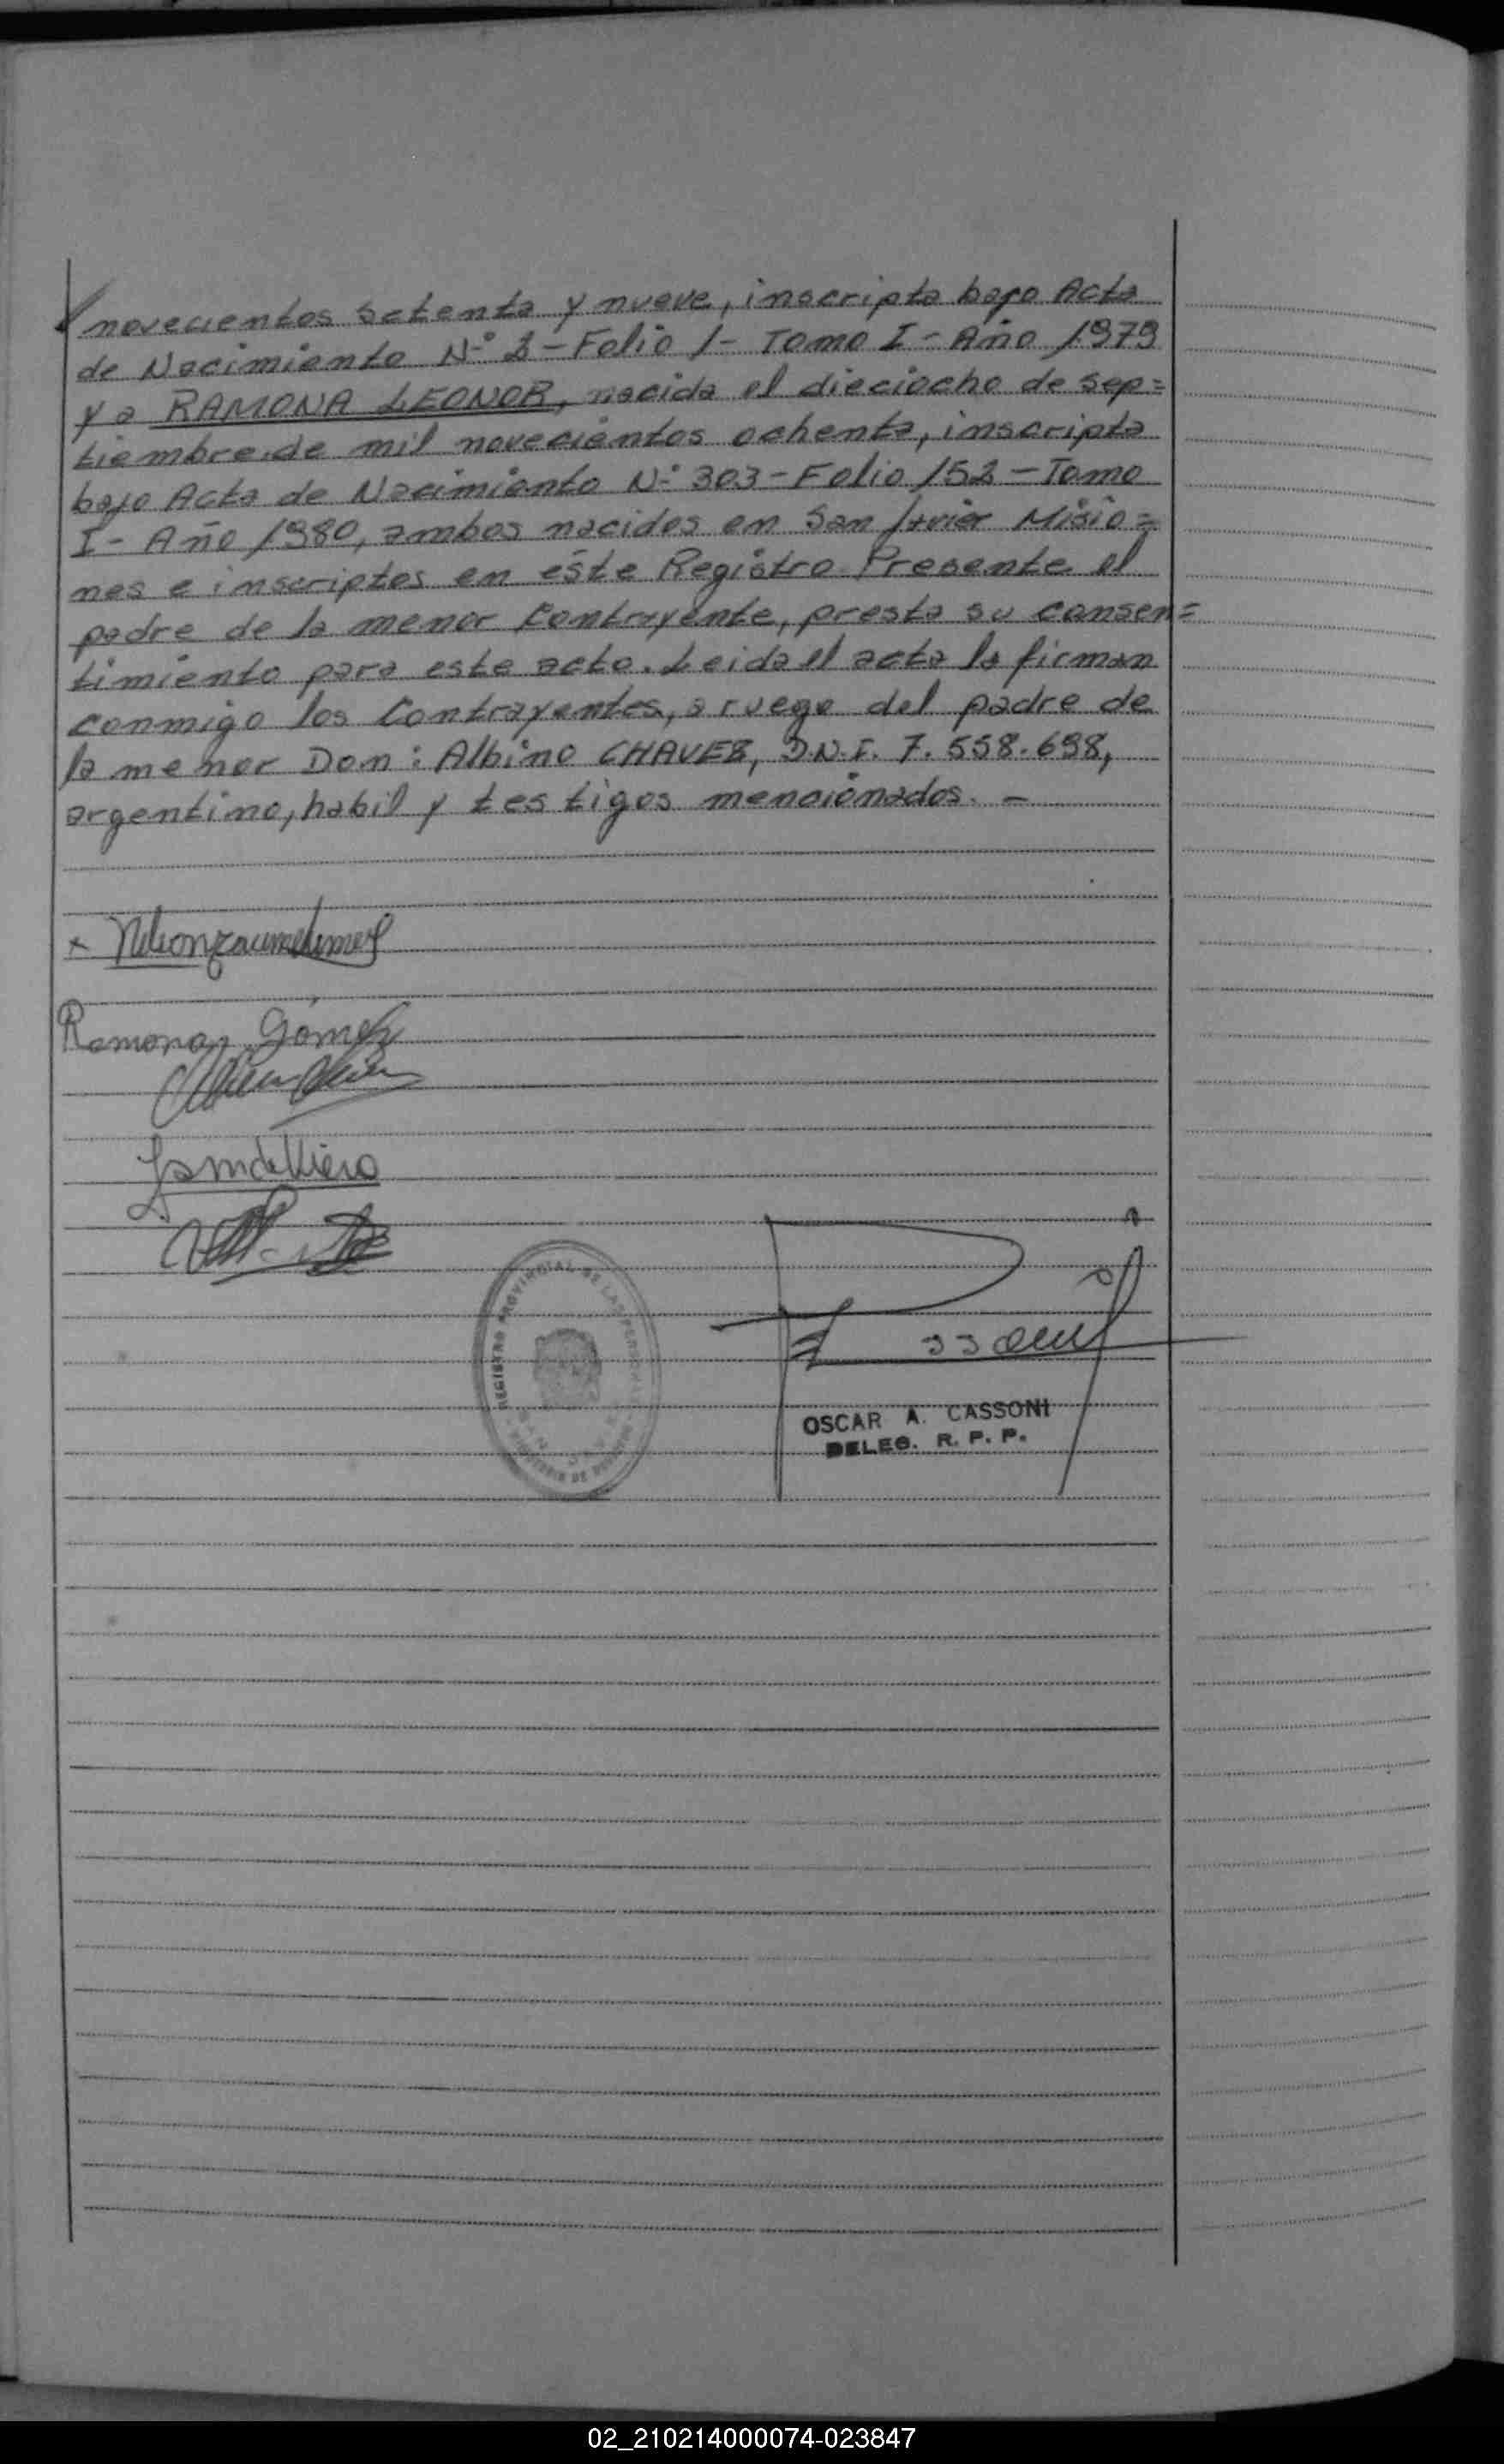 novecientos setenta y nueve, inscripta bajo Acta
de Nacimiento N° 2 - Folio 1 - Tomo I - Año 1979
y a RAMONA LEONOR, nacida el dieciocho de Sep=
tiembre de mil novecientos ochenta, inscripta
bajo Acta de Nacimiento N° 303 - Folio 152 - Tomo
I - Año 1980, ambos nacidos en San Javier Misio=
nes e inscriptos en éste Registro. Presente el
padre de la menor Contrayente, presta su consen=
timiento para este acto. Leida el acta la firman
conmigo los Contrayentes, a ruego del padre de
la menor Don: Albino CHAVEZ, D.N.I. 7.558.698,
argentino, habil y testigos mencionados. -
Ramona Gómez
REGISTRO PROVINCIAL DE LAS PERSONAS
OSCAR A. CASSONI
DELEG. R. P. P.
02_210214000074-023847